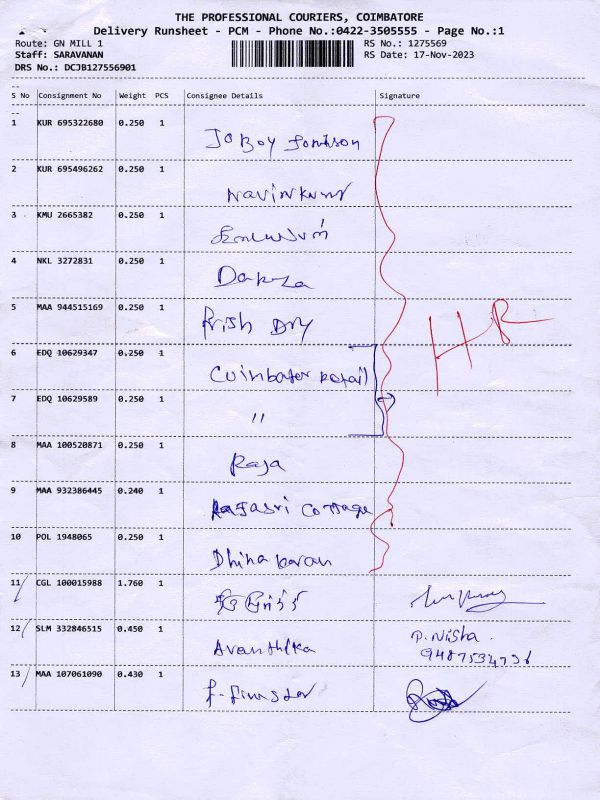 THE PROFESSIONAL COURIERS, COIMBATORE
Delivery Runsheet - PCM - Phone No.:0422-3505555 - Page No.:1
Route: GN MILL 1 RS No.: 1275569
Staff: SARAVANAN RS Date: 17-Nov-2023
DRS No.: DCJB127556901
S No Consignment No Weight PCS Consignee Details Signature
1 KUR 695322680 0.250 1
JoBoy
2 KUR 695496262 0.250 1
Navinkumar
3 KMU 2665382 0.250 1
4 NKL 3272831 0.250 1
5 MAA 944515169 0.250 1
DRY
HR
6 EDQ 10629347 0.250 1
7 EDQ 10629589 0.250 1
"
8 MAA 100520871 0.250 1
Raja
9 MAA 932386445 0.240 1
Rajasri Cottage
10 POL 1948065 0.250 1
Dhinakaran
11 CGL 100015988 1.760 1
12 SLM 332846515 0.450 1
Avanthika P. Nisha.
9487534736
13 MAA 107061090 0.430 1